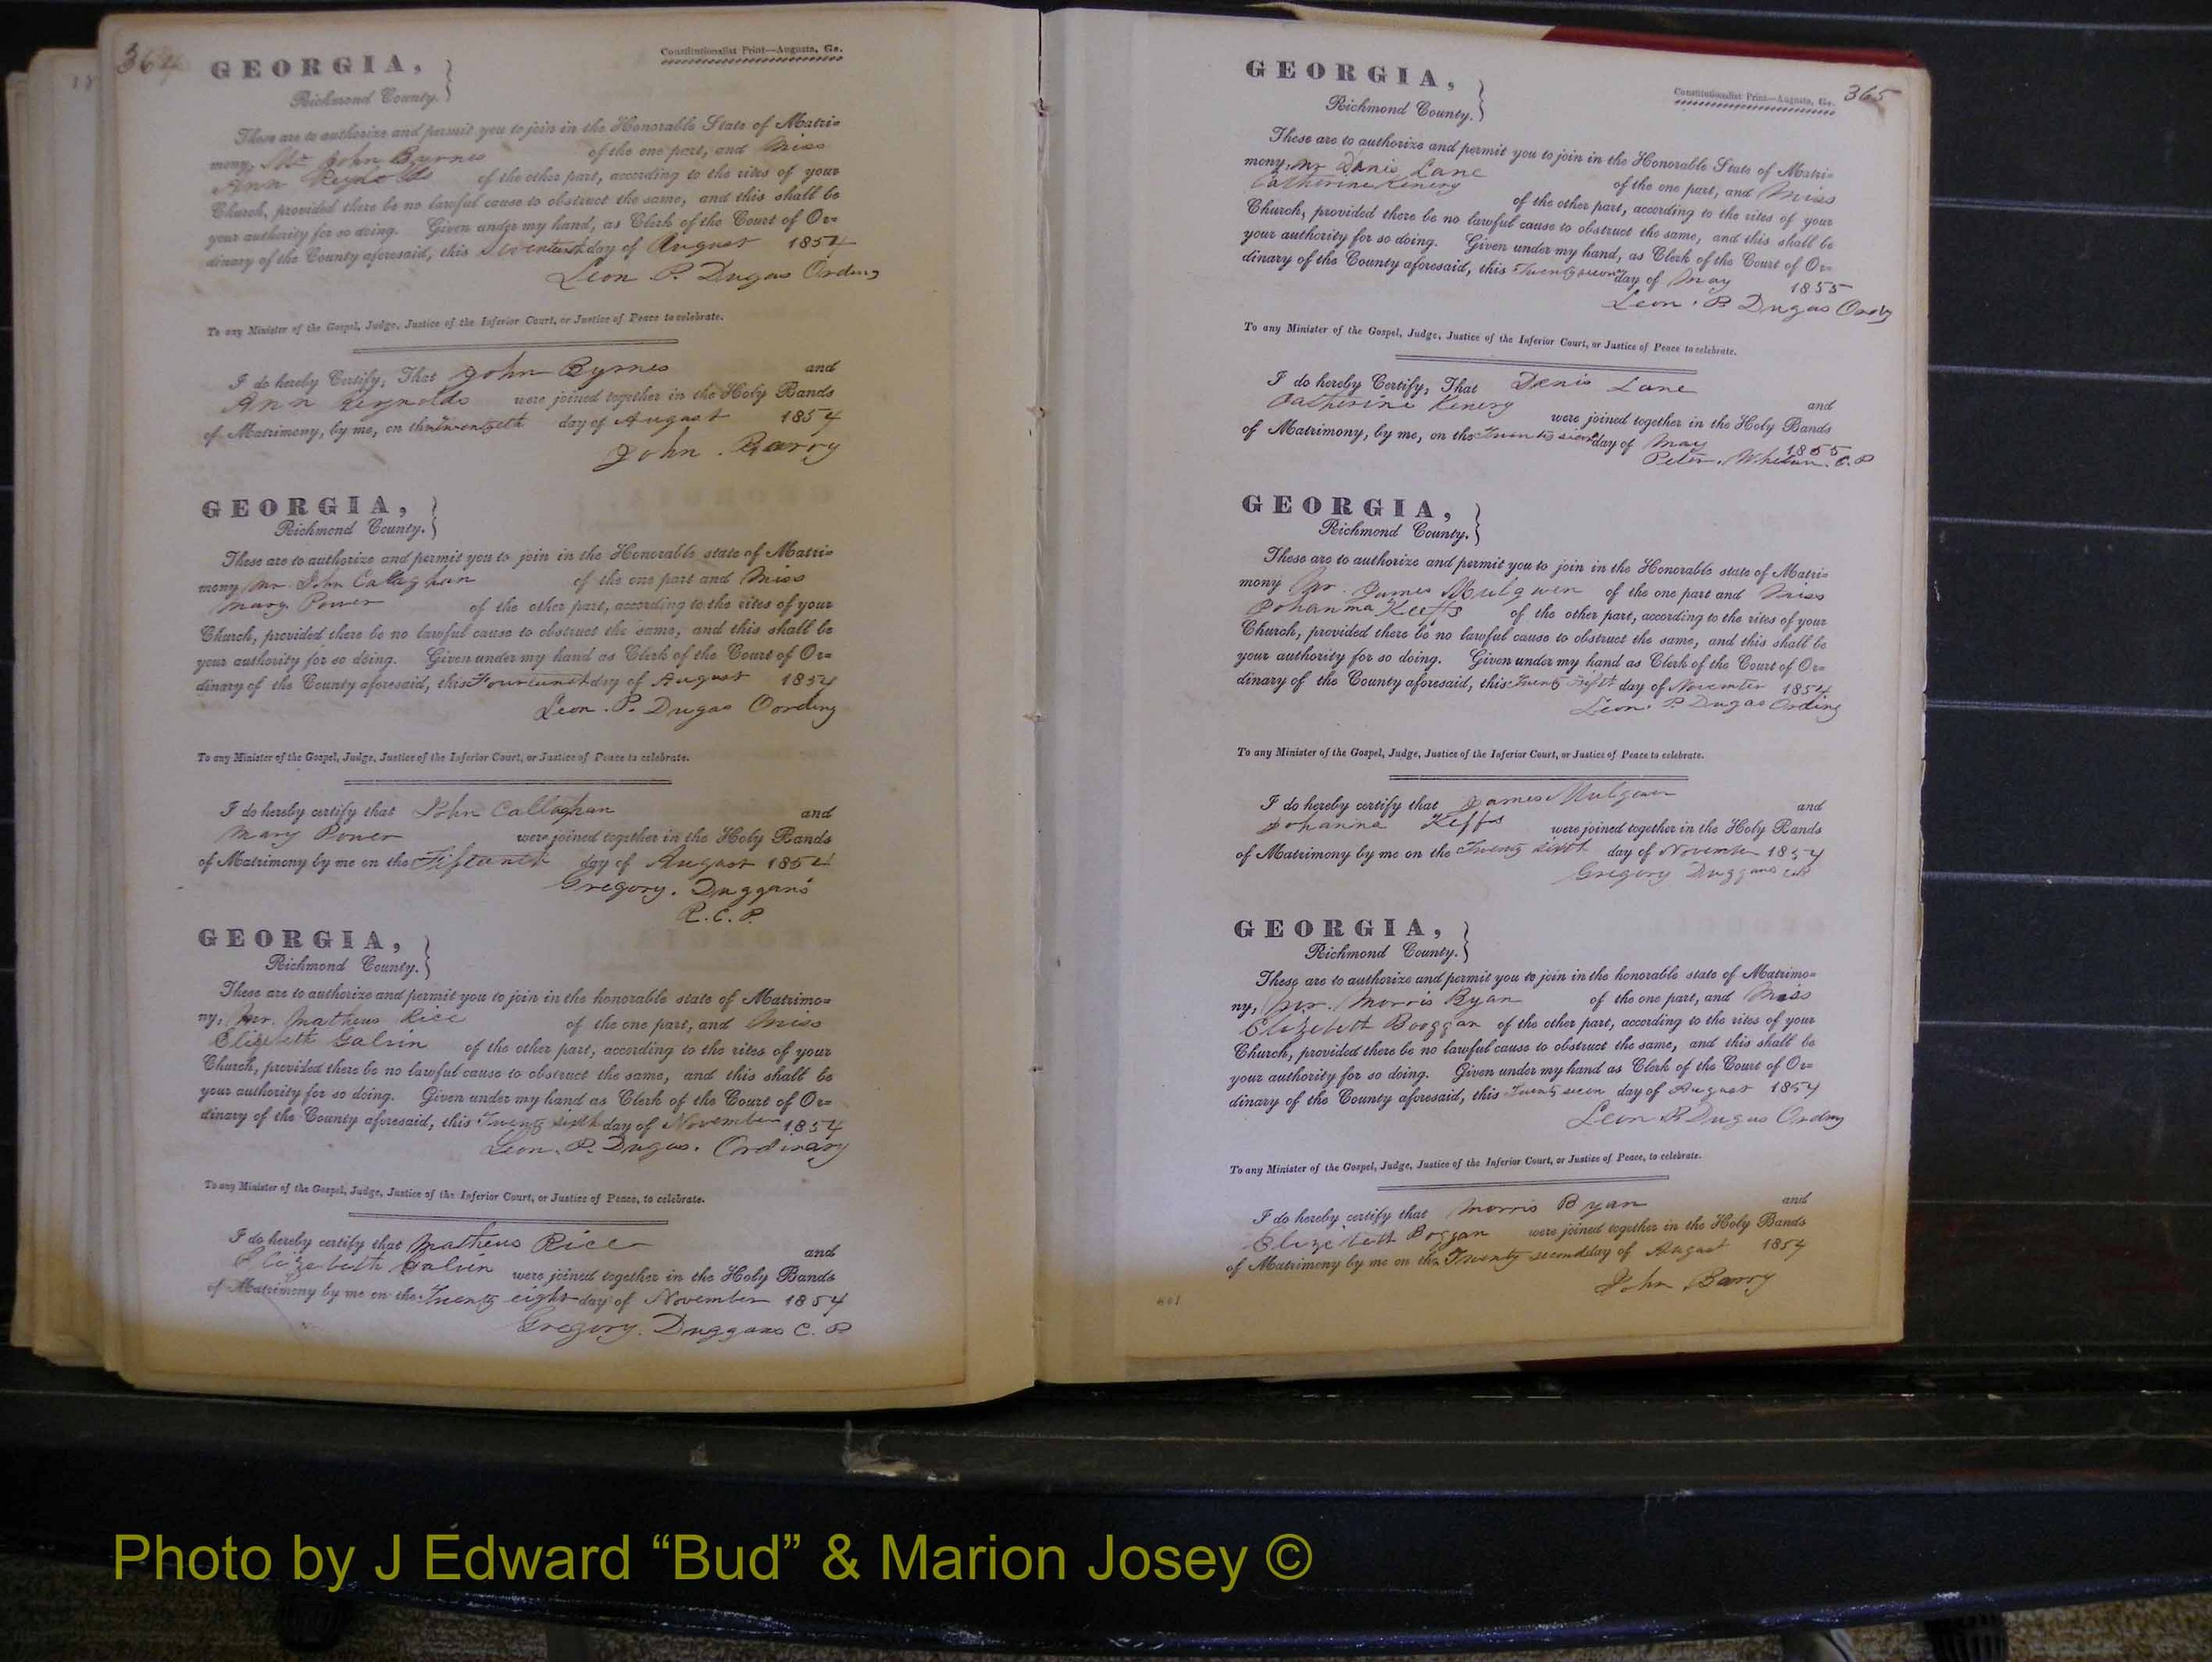 364
Constitutionalist Print—Augusta, Ga.
GEORGIA,
Richmond County.
These are to authorize and permit you to join in the Honorable State of Matri=
mony, Mr John Byrnes of the one part, and Miss
Ann Reynolds of the other part, according to the rites of your
Church, provided there be no lawful cause to obstruct the same, and this shall be
your authority for so doing. Given under my hand, as Clerk of the Court of Or=
dinary of the County aforesaid, this day of August 1854
Leon P. Dugas Ordiny
To any Minister of the Gospel, Judge, Justice of the Inferior Court, or Justice of Peace to celebrate.
I do hereby Certify, That John Byrnes and
Ann Reynolds were joined together in the Holy Bands
of Matrimony, by me, on the twentyeth day of August 1854
John . Barry
GEORGIA,
Richmond County.
These are to authorize and permit you to join in the Honorable state of Matri=
mony Mr John Calaghan of the one part and Miss
Mary Power of the other part, according to the rites of your
Church, provided there be no lawful cause to obstruct the same, and this shall be
your authority for so doing. Given under my hand as Clerk of the Court of Or=
dinary of the County aforesaid, this day of August 1854
Leon . P. Dugas Oording
To any Minister of the Gospel, Judge, Justice of the Inferior Court, or Justice of Peace to celebrate.
I do hereby certify that John Callaghan and
Mary Power were joined together in the Holy Bands
of Matrimony by me on the Fifteenth day of August 1854
Gregory. Duggans
R.C.P.
GEORGIA,
Richmond County.
These are to authorize and permit you to join in the honorable state of Matrimo=
ny, Mr. Matheus Rice of the one part, and Miss
Galvin of the other part, according to the rites of your
Church, provided there be no lawful cause to obstruct the same, and this shall be
your authority for so doing. Given under my hand as Clerk of the Court of Or=
dinary of the County aforesaid, this Twenty sixth day of November 1854
Leon. P. Dugas. Ordinary
To any Minister of the Gospel, Judge, Justice of the Inferior Court, or Justice of Peace, to celebrate.
I do hereby certify that Matheus Rice and
Elizebeth Galvin were joined together in the Holy Bands
of Matrimony by me on the Twenty eight day of November 1854
Gregory. Duggans C. P
365
Constitutionalist Print—Augusta, Ga.
GEORGIA,
Richmond County.
These are to authorize and permit you to join in the Honorable State of Matri=
mony, Mr Denis Lane of the one part, and Miss
Catherine Kenery of the other part, according to the rites of your
Church, provided there be no lawful cause to obstruct the same, and this shall be
your authority for so doing. Given under my hand, as Clerk of the Court of Or=
dinary of the County aforesaid, this day of May 1855
Leon . P. Dugas Ordy
To any Minister of the Gospel, Judge, Justice of the Inferior Court, or Justice of Peace to celebrate.
I do hereby Certify, That Denis Lane and
Catherine Kenery were joined together in the Holy Bands
of Matrimony, by me, on the day of May 1855
Peter. Whelan. C. P
GEORGIA,
Richmond County.
These are to authorize and permit you to join in the Honorable state of Matri=
mony Mr. James Mulgwen of the one part and Miss
Johanna Keeffs of the other part, according to the rites of your
Church, provided there be no lawful cause to obstruct the same, and this shall be
your authority for so doing. Given under my hand as Clerk of the Court of Or=
dinary of the County aforesaid, this day of November 1854
Leon. P Dugas Ording
To any Minister of the Gospel, Judge, Justice of the Inferior Court, or Justice of Peace to celebrate.
I do hereby certify that James and
Johanna Keffs were joined together in the Holy Bands
of Matrimony by me on the Twenty sixth day of November 1854
Gregory Duggans
GEORGIA,
Richmond County.
These are to authorize and permit you to join in the honorable state of Matrimo=
ny, Mr. Morris Byan of the one part, and Miss
Elizebeth Booggan of the other part, according to the rites of your
Church, provided there be no lawful cause to obstruct the same, and this shall be
your authority for so doing. Given under my hand as Clerk of the Court of Or=
dinary of the County aforesaid, this day of August 1854
Leon P Dugas Ordny
To any Minister of the Gospel, Judge, Justice of the Inferior Court, or Justice of Peace, to celebrate.
I do hereby certify that Morris Byan and
Elizebeth Boggan were joined together in the Holy Bands
of Matrimony by me on the Twenty second day of August 1854
John Barry
Photo by J Edward “Bud” & Marion Josey ©